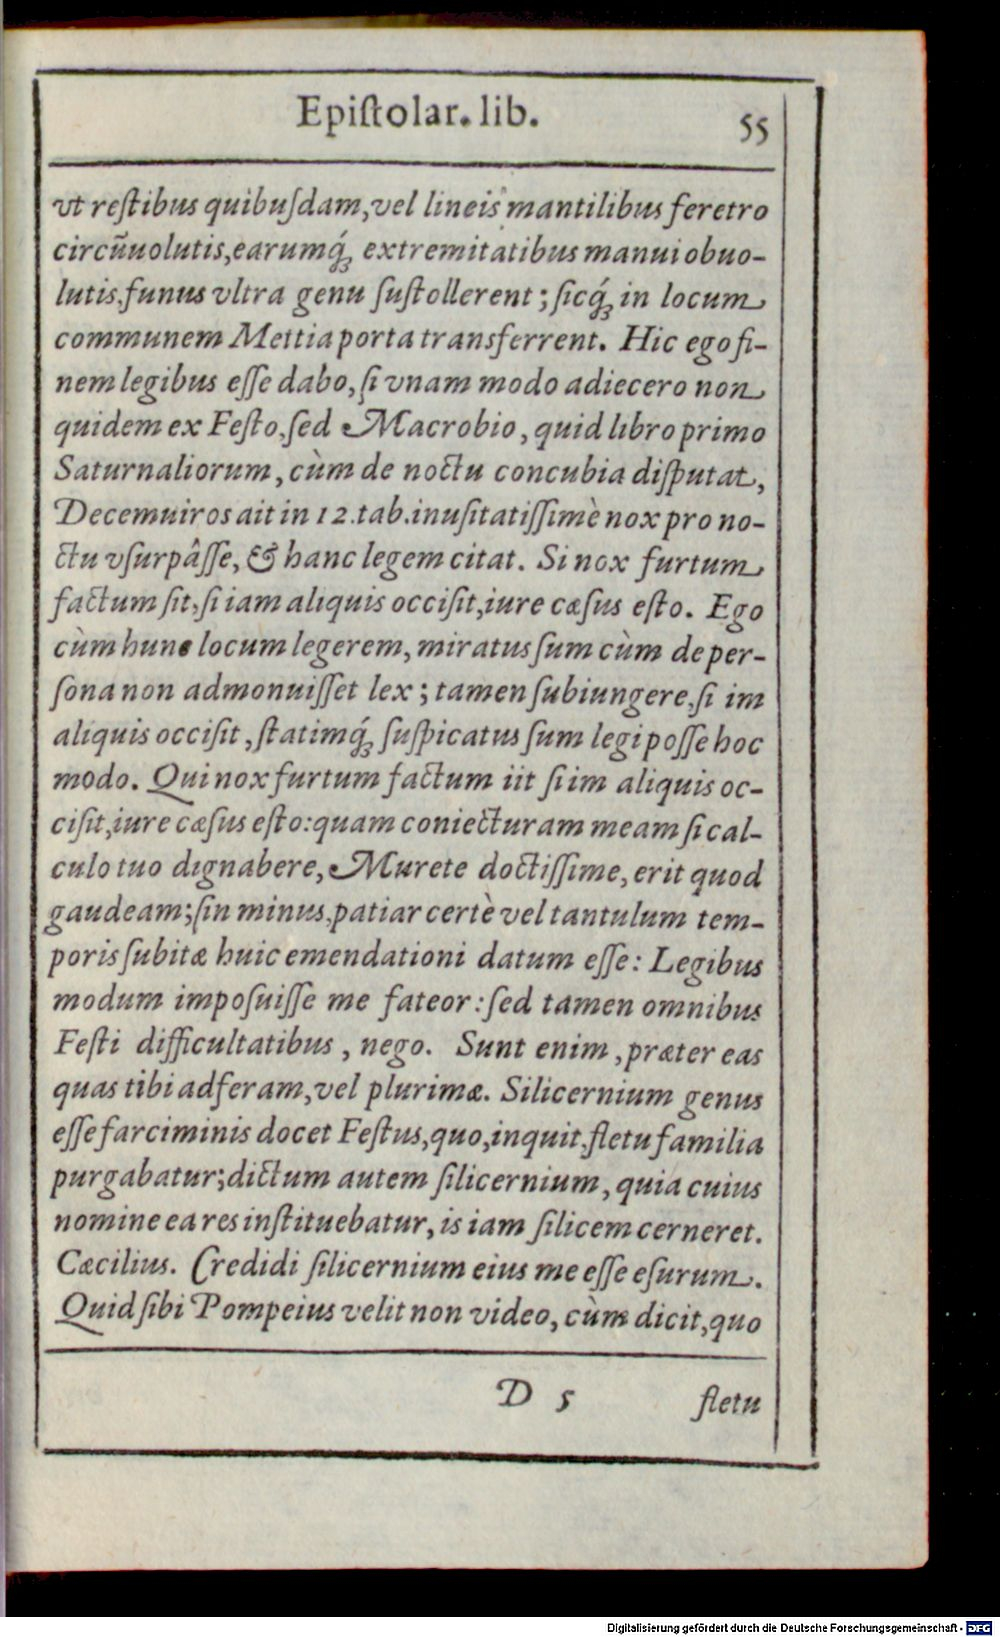 Epiſtolar. lib. 55
vt reſtibus quibuſdam, vel lineis mantilibus feretro
circũuolutis, earumq́ꝫ extremitatibus manui obuo-
lutis, funus vltra genu ſuſtollerent; ſicq́ꝫ in locum
communem Mettia porta transferrent. Hic ego fi-
nem legibus eſſe dabo, ſi vnam modo adiecero non
quidem ex Feſto, ſed Macrobio, quid libro primo
Saturnaliorum, cùm de noctu concubia diſputat,
Decemuiros ait in 12. tab. inuſitatiſſimè nox pro no-
ctu vſurpâſſe, & hanc legem citat. Si nox furtum
factum ſit, ſi iam aliquis occiſit, iure cæſus eſto. Ego
cùm hunc locum legerem, miratus ſum cùm de per-
ſona non admonuiſſet lex; tamen ſubiungere, ſi im
aliquis occiſit, ſtatimq́ꝫ ſuſpicatus ſum legi poſſe hoc
modo. Qui nox furtum factum iit ſi im aliquis oc-
ciſit, iure cæſus eſto: quam coniecturam meam ſi cal-
culo tuo dignabere, Murete doctiſſime, erit quod
gaudeam; ſin minus, patiar certè vel tantulum tem-
poris ſubitæ huic emendationi datum eſſe: Legibus
modum impoſuiſſe me fateor: ſed tamen omnibus
Feſti difficultatibus, nego. Sunt enim, præter eas
quas tibi adferam, vel plurimæ. Silicernium genus
eſſe farciminis docet Feſtus, quo, inquit, fletu familia
purgabatur; dictum autem ſilicernium, quia cuius
nomine ea res inſtituebatur, is iam ſilicem cerneret.
Cæcilius. Credidi ſilicernium eius me eſſe eſurum.
Quid ſibi Pompeius velit non video, cùm dicit, quo
D 5 fletu
Digitalisierung gefördert durch die Deutsche Forschungsgemeinschaft - DFG